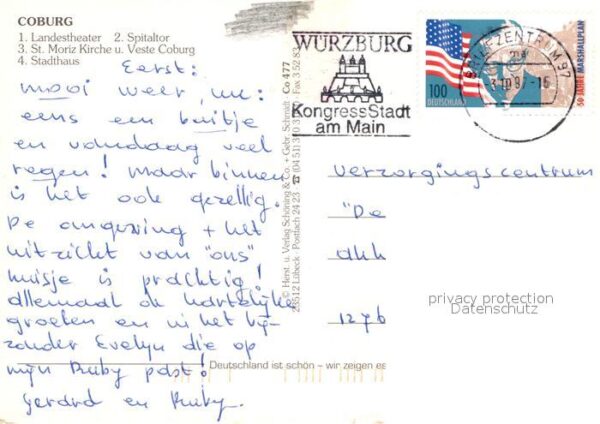 COBURG
1. Landestheater 2. Spitaltor
3. St. Moriz Kirche u. Veste Coburg
4. Stadthaus
Eerst:
mooi weer, nu:
eens een buitje
en vandaag veel
regen! Maar binnen
is het ook gezellig.
De omgeving + het
uitzicht van "ons"
huisje is prachtig!
Allemaal de hartelijke
groeten en in het bij-
zonder Evelyn die op
mijn Ruby past!
Gerard en Ruby.
© Herst. u. Verlag Schöning & Co. + Gebr. Schmidt Co 477
23512 Lübeck · Postfach 24 23
WÜRZBURG
KongressStadt
am Main
BRIEFZENTRUM 97
100
DEUTSCHLAND
50 JAHRE MARSHALLPLAN
Verzorgingscentrum
"De
1276
privacy protection
Datenschutz
Deutschland ist schön – wir zeigen es